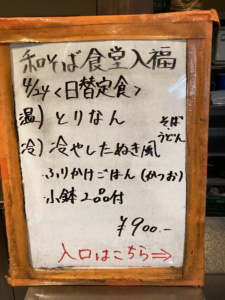 和そば食堂入福
4/24<日替定食>
温) とりなん
そば
うどん
冷) 冷やしたぬき風
ふりかけごはん (かつお)
小鉢2品付
¥900.-
入口はこちら⇒